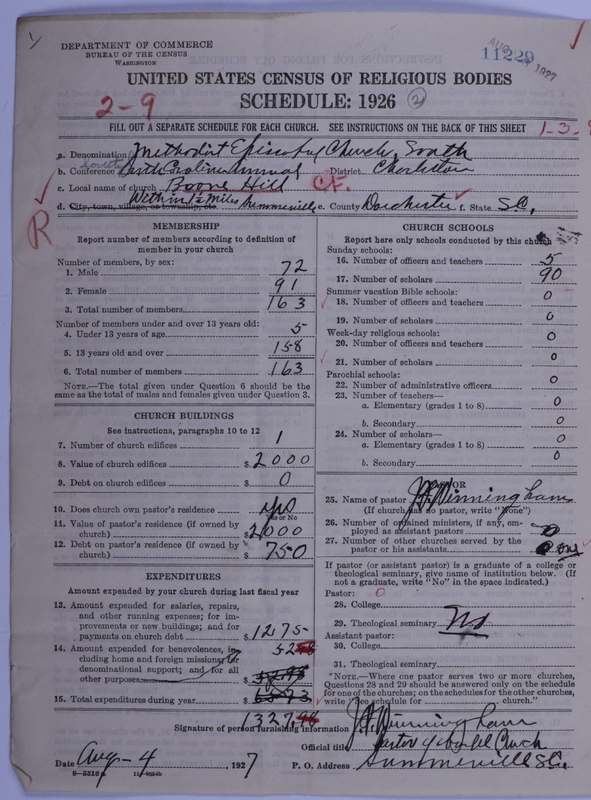 DEPARTMENT OF COMMERCE
BUREAU OF THE CENSUS
WASHINGTON
11229
AUG 1927
UNITED STATES CENSUS OF RELIGIOUS BODIES
SCHEDULE: 1926 (2)
2-9
FILL OUT A SEPARATE SCHEDULE FOR EACH CHURCH. SEE INSTRUCTIONS ON THE BACK OF THIS SHEET
1-3-
a. Denomination Methodist Episcopal Church, South
b. Conference South Carolina Annual District Charleston
c. Local name of church Boone Hill
d. City, town, village, or township, etc. Within 1½ Miles Summerville e. County Dorchester f. State S.C.
R
MEMBERSHIP
Report number of members according to definition of
member in your church
Number of members, by sex:
1. Male 72
2. Female 91
3. Total number of members 163
Number of members under and over 13 years old:
4. Under 13 years of age 5
5. 13 years old and over 158
6. Total number of members 163
NOTE.—The total given under Question 6 should be the
same as the total of males and females given under Question 3.
CHURCH BUILDINGS
See instructions, paragraphs 10 to 12
7. Number of church edifices 1
8. Value of church edifices $ 2000
9. Debt on church edifices $ 0
10. Does church own pastor's residence yes
Yes or No
11. Value of pastor's residence (if owned by
church) $ 2000
12. Debt on pastor's residence (if owned by
church) $ 750
EXPENDITURES
Amount expended by your church during last fiscal year
13. Amount expended for salaries, repairs,
and other running expenses; for im-
provements or new buildings; and for
payments on church debt $ 1275
14. Amount expended for benevolences, in-
cluding home and foreign missions; for
denominational support; and for all
other purposes $
15. Total expenditures during year $
CHURCH SCHOOLS
Report here only schools conducted by this church
Sunday schools:
16. Number of officers and teachers 5
17. Number of scholars 90
Summer vacation Bible schools:
18. Number of officers and teachers 0
19. Number of scholars 0
Week-day religious schools:
20. Number of officers and teachers 0
21. Number of scholars 0
Parochial schools:
22. Number of administrative officers 0
23. Number of teachers—
a. Elementary (grades 1 to 8) 0
b. Secondary 0
24. Number of scholars—
a. Elementary (grades 1 to 8) 0
b. Secondary 0
PASTOR
25. Name of pastor Winningham
(If church has no pastor, write "None")
26. Number of ordained ministers, if any, em-
ployed as assistant pastors 0
27. Number of other churches served by the
pastor or his assistants one
If pastor (or assistant pastor) is a graduate of a college or
theological seminary, give name of institution below. (If
not a graduate, write "No" in the space indicated.)
Pastor:
28. College
29. Theological seminary No
Assistant pastor:
30. College
31. Theological seminary
"NOTE.—Where one pastor serves two or more churches,
Questions 28 and 29 should be answered only on the schedule
for one of the churches; on the schedules for the other churches,
write 'See schedule for church.'"
Signature of person furnishing information Winningham
Official title Pastor
Date Aug - 4, 1927 P. O. Address Summerville S.C.